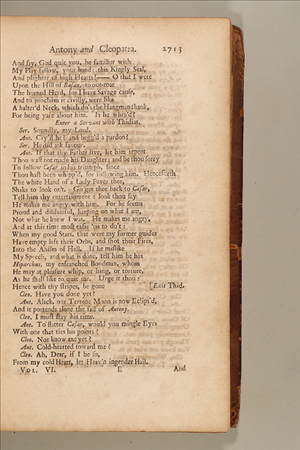 Antony and Cleopatra. 2713
And say, God quit you, be familiar with
My Play-fellow, your hand; this Kingly Seal,
And plighter of high Hearts! —— O that I were
Upon the Hill of Basan, to out-roar
The horned Herd, for I have Savage cause,
And to proclaim it civilly, were like
A halter'd Neck, which do's the Hangman thank,
For being yare about him. Is he whipt?
Enter a Servant with Thidias.
Ser. Soundly, my Lord.
Ant. Cry'd he? and begg'd a pardon?
Ser. He did ask favour.
Ant. If that thy Father live, let him repent
Thou wast not made his Daughter; and be thou sorry
To follow Cæsar in his triumph, since
Thou hast been whipp'd, for following him. Henceforth
The white Hand of a Lady Fever thee,
Shake to look on't. Go get thee back to Cæsar,
Tell him thy entertainment: look thou say
He makes me angry with him. For he seems
Proud and disdainful, harping on what I am,
Not what he knew I was. He makes me angry,
And at this time most easie 'tis to do't:
When my good Stars, that were my former guides
Have empty left their Orbs, and shot their Fires,
Into the Abism of Hell. If he mislike
My Speech, and what is done, tell him he has
Hiparchus, my enfranched Bondman, whom
He may at pleasure whip, or hang, or torture,
As he shall like to quit me. Urge it thou:
Hence with thy stripes, be gone [Exit Thid.
Cleo. Have you done yet?
Ant. Alack, our Terrene Moon is now Eclips'd,
And it portends alone the fall of Antony.
Cleo. I must stay his time.
Ant. To flatter Cæsar, would you mingle Eyes
With one that ties his points?
Cleo. Not know me yet?
Ant. Cold-hearted toward me?
Cleo. Ah, Dear, if I be so,
From my cold Heart, let Heav'n ingender Hail,
Vol. VI. E And